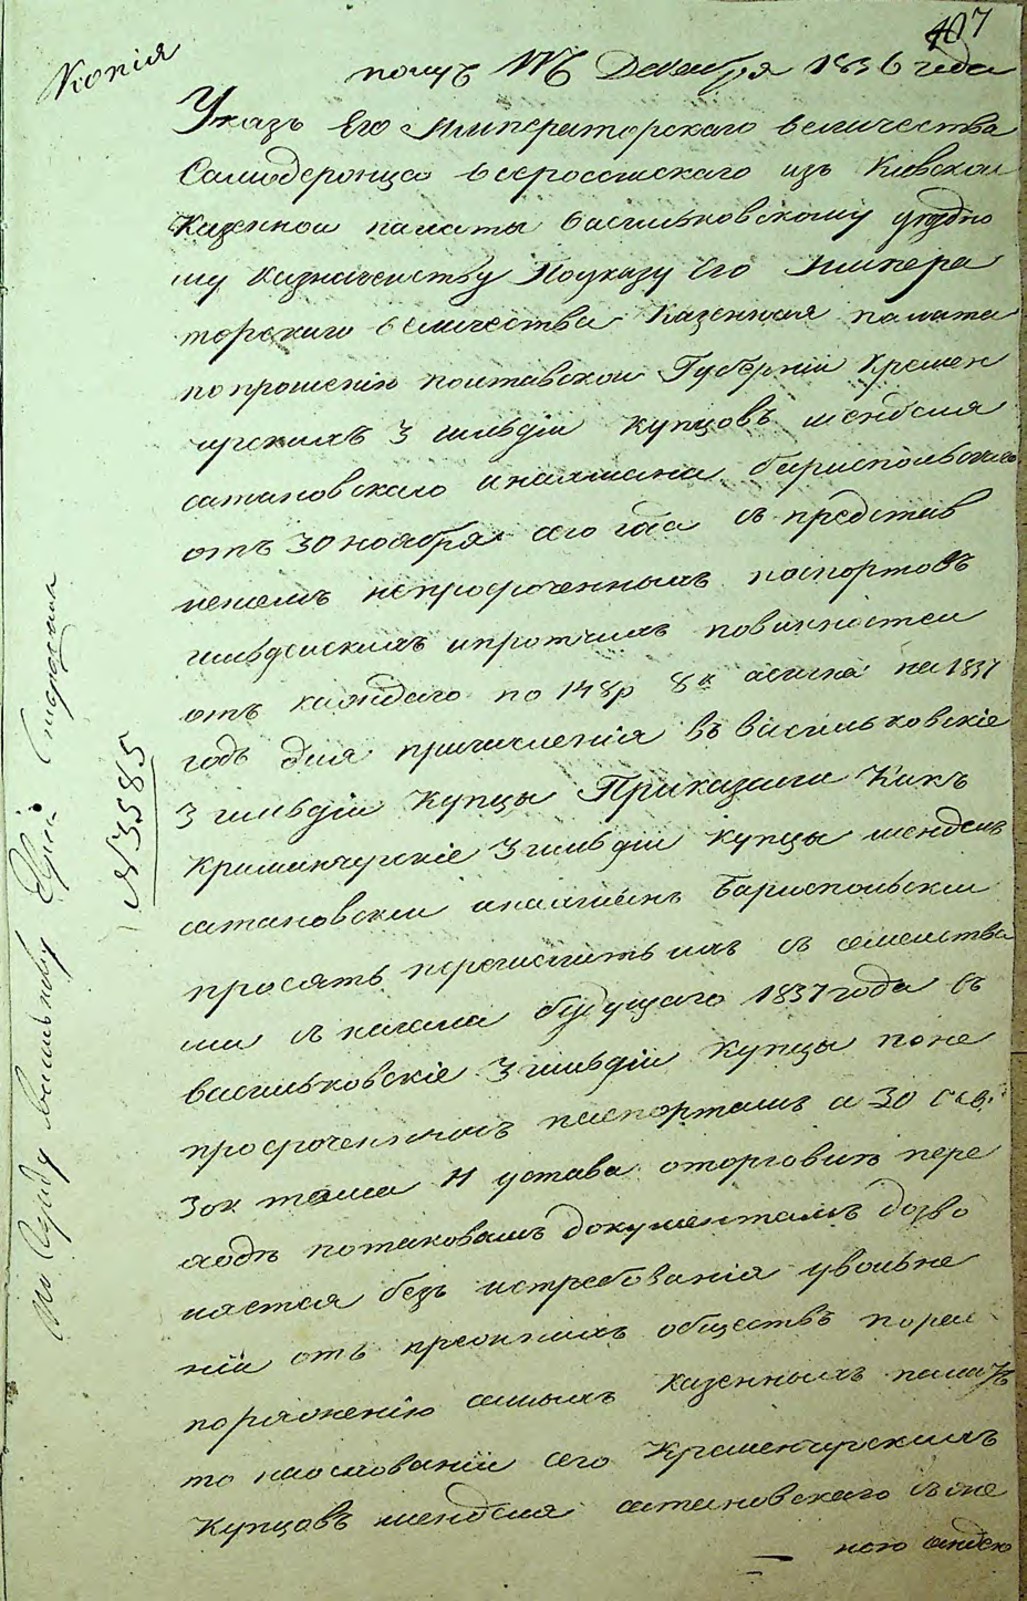 407
Копія
получ 11 Декабря 1836 года
Указъ Его Императорскаго величества
Самодержца всероссійскаго изъ Кіевской
Казенной палаты васильковскому уездно
му казначейству Поуказу Его Импера
торскаго величества Казенная палата
попрошенію полтавской Губерніи Кремен
чугскихъ 3 гильдіи купцовъ менделя
сатановскаго ина бариспольскаго
отъ 30 ноября сего года съ представ
леніемъ непросроченныхъ паспортовъ
гильдейскихъ ипротчихъ повинностей
отъ каждаго по 148р 8к асигна на 1837
годъ для причисленія въ васильковскіе
3 гильдіи Купцы Приказали Какъ
Криминчугскіе 3 гильдіи купцы мендель
сатановскій и бариспольскій
просятъ перечислить ихъ съ семейства
ми съ начала будущаго 1837 года въ
васильковскіе 3 гильдіи купцы поне
просроченнымъ паспортамъ а 30
тома 11 устава оторговли пере
ходъ потаковымъ документамъ дозво
ляется безъ истребованія увольне
нія отъ прежнихъ обществъ по
поряженію самыхъ казенныхъ палатъ
то наоснованіи сего Кременчугскихъ
Купцовъ менделя сатановскаго съже
ною
№ 3585
По Суду Василькову